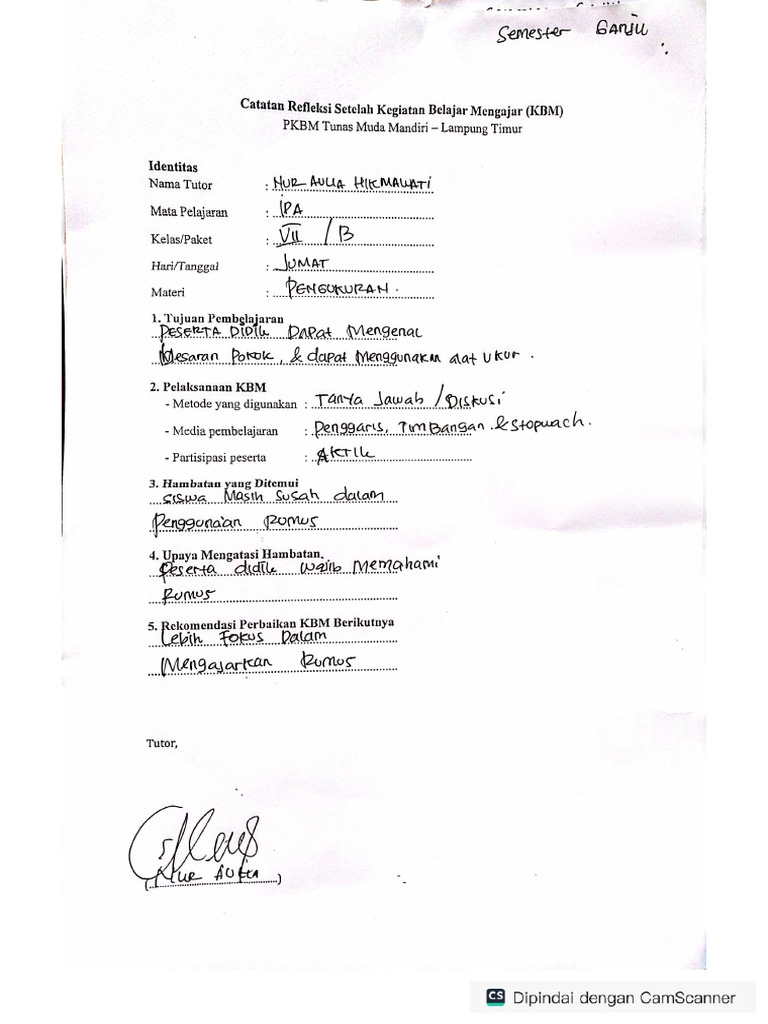 Semester GANJIL
Catatan Refleksi Setelah Kegiatan Belajar Mengajar (KBM)
PKBM Tunas Muda Mandiri – Lampung Timur
Identitas
Nama Tutor : NUR AULIA HIKMAWATI
Mata Pelajaran : IPA
Kelas/Paket : VII / B
Hari/Tanggal : JUMAT
Materi : PENGUKURAN.
1. Tujuan Pembelajaran
PESERTA DIDIK DAPAT Mengenal
Besaran Pokok, & dapat Menggunakan alat Ukur.
2. Pelaksanaan KBM
- Metode yang digunakan : Tanya Jawab / Diskusi
- Media pembelajaran : Penggaris, Timbangan & Stopwach.
- Partisipasi peserta : AKTIK
3. Hambatan yang Ditemui
siswa Masih Susah dalam
Penggunaan Rumus
4. Upaya Mengatasi Hambatan
Peserta didik wajib Memahami
Rumus
5. Rekomendasi Perbaikan KBM Berikutnya
Lebih Fokus Dalam
Mengajarkan Rumus
Tutor,
(Nur Aulia)
CS Dipindai dengan CamScanner